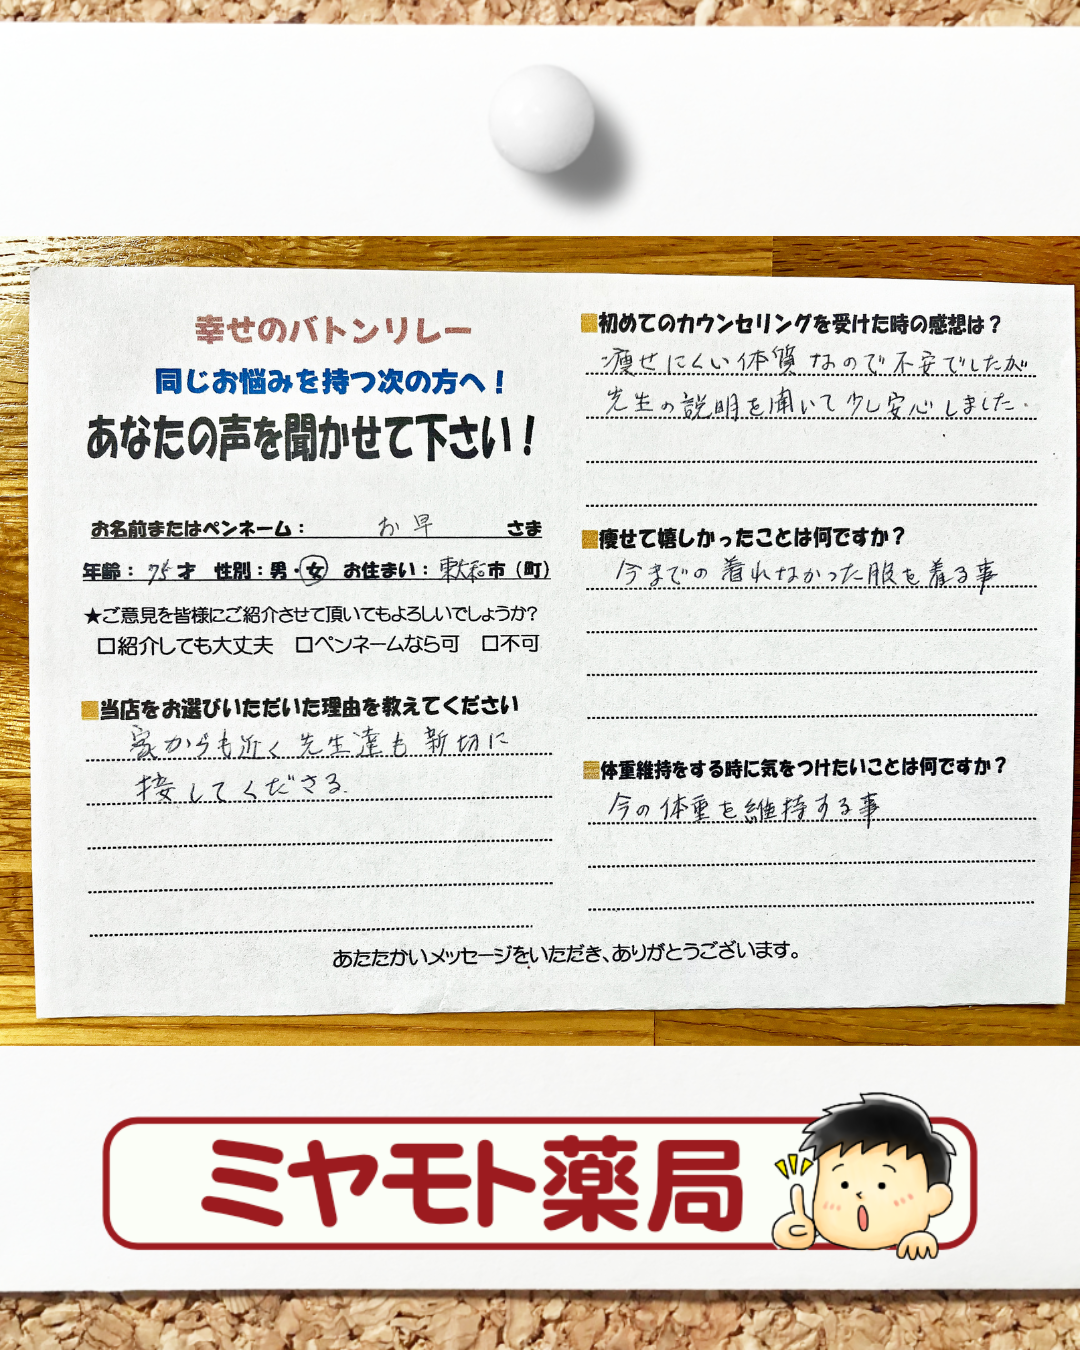 幸せのバトンリレー
同じお悩みを持つ次の方へ！
あなたの声を聞かせて下さい！
お名前またはペンネーム： お早 さま
年齢：75才 性別：男・女 お住まい：東大和市（町）
★ご意見を皆様にご紹介させて頂いてもよろしいでしょうか？
□紹介しても大丈夫 □ペンネームなら可 □不可
■当店をお選びいただいた理由を教えてください
家からも近く先生達も新切に
接してくださる.
■初めてのカウンセリングを受けた時の感想は？
痩せにくい体質なので不安でしたが
先生の説明を聞いて少し安心しました.
■痩せて嬉しかったことは何ですか？
今までの着れなかった服を着る事
■体重維持をする時に気をつけたいことは何ですか？
今の体重を維持する事
あたたかいメッセージをいただき、ありがとうございます。
ミヤモト薬局